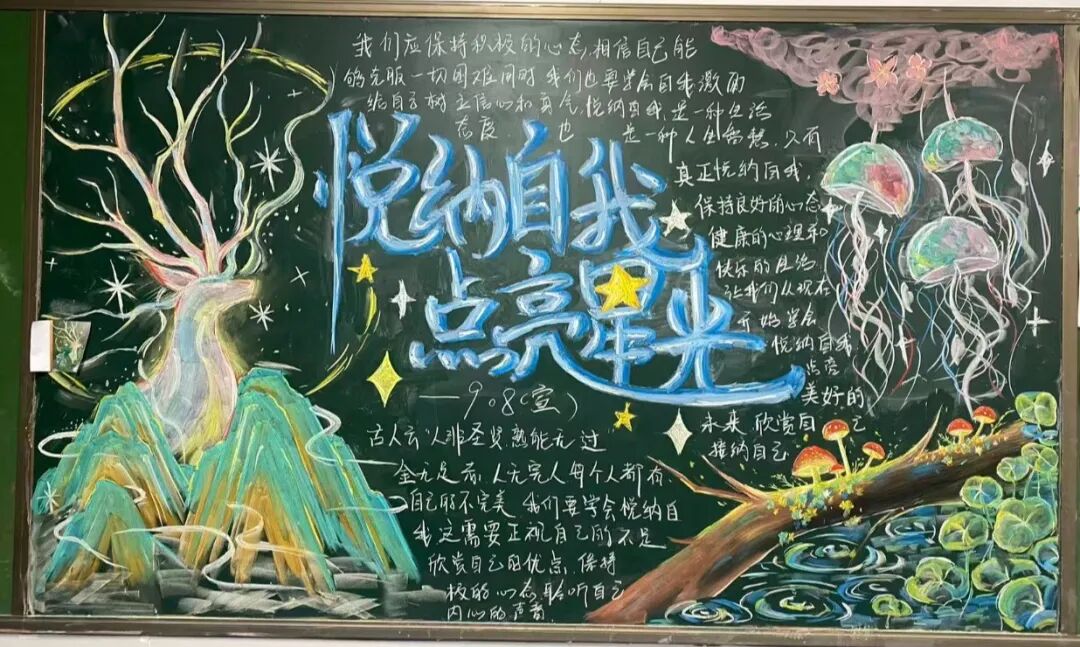 我们应保持积极的心态,相信自己能
够克服一切困难同时我们也要学会自我激励
给自己树立信心和勇气,悦纳自我,是一种生活
态度 也 是一种人生智慧,只有
真正悦纳自我,
保持良好的心态
健康的心理和
快乐的生活
让我们从现在
开始学会
悦纳自我
点亮
美好的
未来 欣赏自己
接纳自己
悦纳自我
点亮星光
—908(宣)
古人云人非圣贤熟能无过
金无足赤,人无完人每个人都有
自己的不完美 我们要学会悦纳自
我 这需要正视自己的不足
欣赏自己的优点,保持
极的心态聆听自己
内心的声音